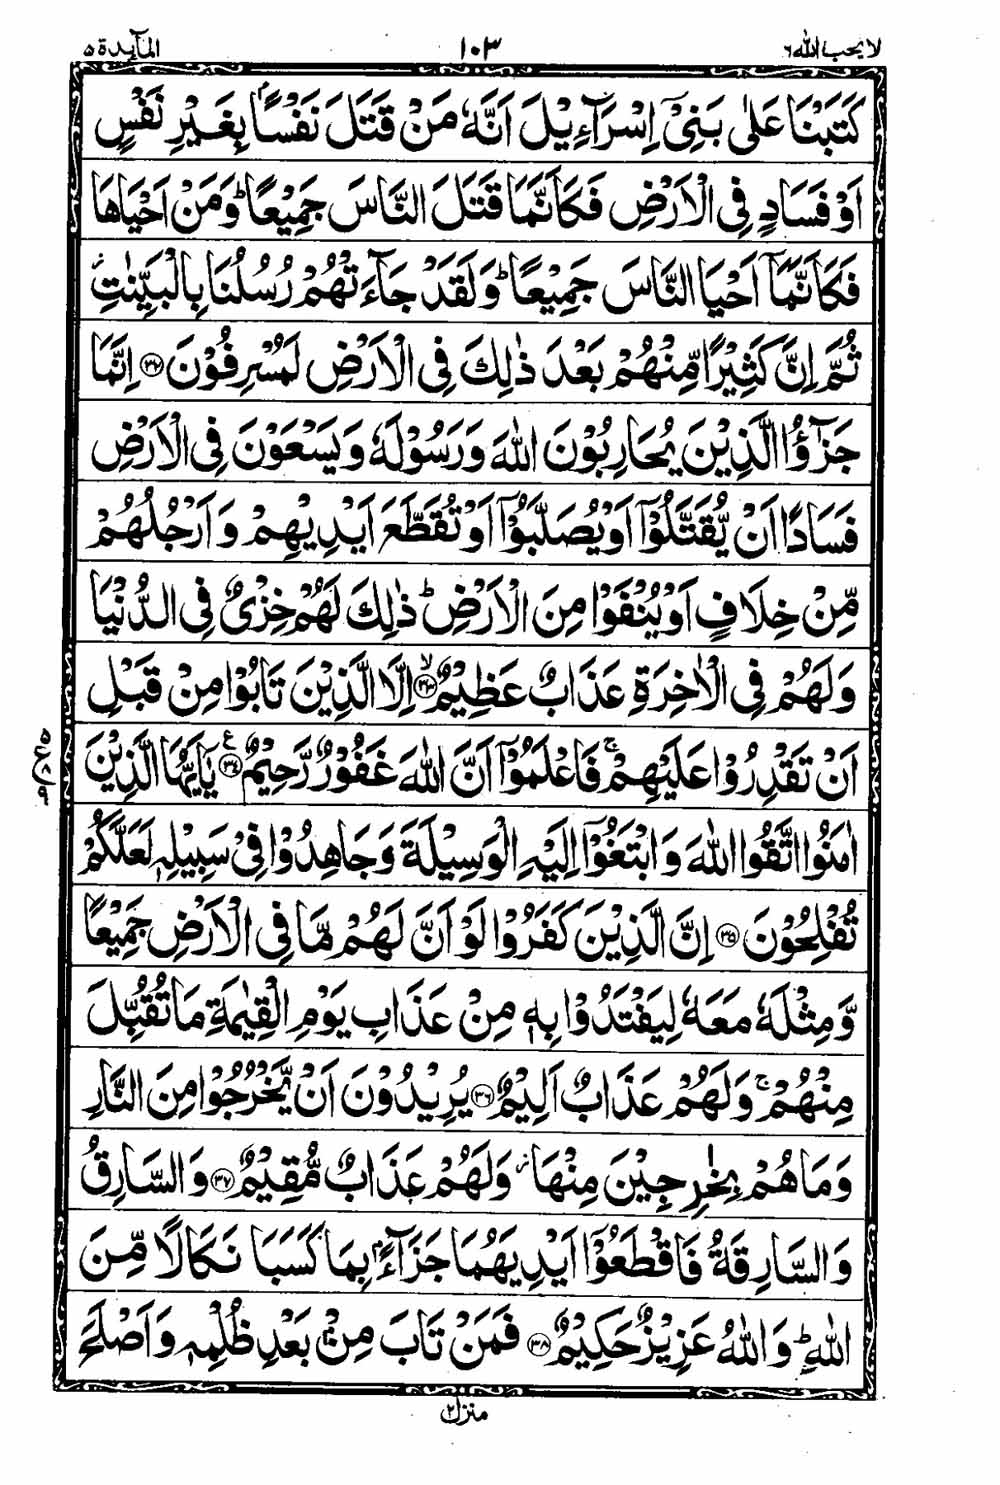 لا يحب الله ٦ ١٠٣ المآىدة ٥
كَتَبْنَا عَلٰى بَنِىْۤ اِسْرَآءِيْلَ اَنَّهٗ مَنْ قَتَلَ نَفْسًاۢ بِغَيْرِ نَفْسٍ
اَوْ فَسَادٍ فِى الْاَرْضِ فَكَاَنَّمَا قَتَلَ النَّاسَ جَمِيْعًاؕ وَمَنْ اَحْيَاهَا
فَكَاَنَّمَاۤ اَحْيَا النَّاسَ جَمِيْعًاؕ وَلَقَدْ جَآءَتْهُمْ رُسُلُنَا بِالْبَيِّنٰتِ
ثُمَّ اِنَّ كَثِيْرًا مِّنْهُمْ بَعْدَ ذٰلِكَ فِى الْاَرْضِ لَمُسْرِفُوْنَ ﴿۳۲﴾ اِنَّمَا
جَزٰٓؤُا الَّذِيْنَ يُحَارِبُوْنَ اللّٰهَ وَرَسُوْلَهٗ وَيَسْعَوْنَ فِى الْاَرْضِ
فَسَادًا اَنْ يُّقَتَّلُوْۤا اَوْ يُصَلَّبُوْۤا اَوْ تُقَطَّعَ اَيْدِيْهِمْ وَاَرْجُلُهُمْ
مِّنْ خِلَافٍ اَوْ يُنْفَوْا مِنَ الْاَرْضِؕ ذٰلِكَ لَهُمْ خِزْىٌ فِى الدُّنْيَا
وَلَهُمْ فِى الْاٰخِرَةِ عَذَابٌ عَظِيْمٌۙ ﴿۳۳﴾ اِلَّا الَّذِيْنَ تَابُوْا مِنْ قَبْلِ
اَنْ تَقْدِرُوْا عَلَيْهِمْۚ فَاعْلَمُوْۤا اَنَّ اللّٰهَ غَفُوْرٌ رَّحِيْمٌ ﴿۳۴﴾ ع يٰۤاَيُّهَا الَّذِيْنَ
اٰمَنُوا اتَّقُوا اللّٰهَ وَابْتَغُوْۤا اِلَيْهِ الْوَسِيْلَةَ وَجَاهِدُوْا فِىْ سَبِيْلِهٖ لَعَلَّكُمْ
تُفْلِحُوْنَ ﴿۳۵﴾ اِنَّ الَّذِيْنَ كَفَرُوْا لَوْ اَنَّ لَهُمْ مَّا فِى الْاَرْضِ جَمِيْعًا
وَّمِثْلَهٗ مَعَهٗ لِيَفْتَدُوْا بِهٖ مِنْ عَذَابِ يَوْمِ الْقِيٰمَةِ مَا تُقُبِّلَ
مِنْهُمْۚ وَلَهُمْ عَذَابٌ اَلِيْمٌ ﴿۳۶﴾ يُرِيْدُوْنَ اَنْ يَّخْرُجُوْا مِنَ النَّارِ
وَمَا هُمْ بِخٰرِجِيْنَ مِنْهَا وَلَهُمْ عَذَابٌ مُّقِيْمٌ ﴿۳۷﴾ وَالسَّارِقُ
وَالسَّارِقَةُ فَاقْطَعُوْۤا اَيْدِيَهُمَا جَزَآءًۢ بِمَا كَسَبَا نَكَالًا مِّنَ
اللّٰهِؕ وَاللّٰهُ عَزِيْزٌ حَكِيْمٌ ﴿۳۸﴾ فَمَنْ تَابَ مِنْۢ بَعْدِ ظُلْمِهٖ وَاَصْلَحَ
منزل ٢